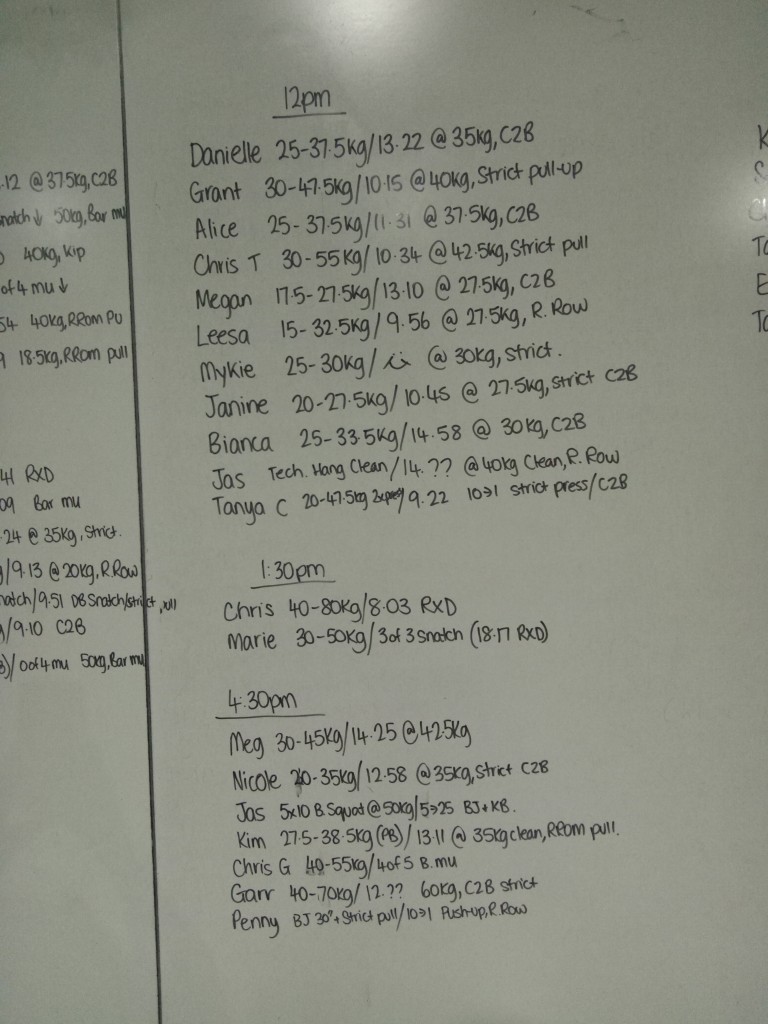 .12 @ 37.5kg, C2B
natch↓ 50kg, Bar mu
40kg, Kip
of 4 mu↓
54 40kg, RRom PU
9 18.5kg, RRom pull
41 RXD
09 Bar mu
.24 @ 35kg, Strict.
g/9.13 @ 20kg, R.Row
natch/9.51 DB Snatch/strict pull
g/9.10 C2B
/0 of 4 mu 50kg, Bar mu
12pm
Danielle 25-37.5kg/13.22 @ 35kg, C2B
Grant 30-47.5kg/10.15 @ 40kg, Strict pull-up
Alice 25-37.5kg/11.31 @ 37.5kg, C2B
Chris T 30-55kg/10.34 @ 42.5kg, Strict pull
Megan 17.5-27.5kg/13.10 @ 27.5kg, C2B
Leesa 15-32.5kg/9.56 @ 27.5kg, R.Row
Mykie 25-30kg/ @ 30kg, Strict.
Janine 20-27.5kg/10.45 @ 27.5kg, Strict C2B
Bianca 25-33.5kg/14.58 @ 30kg, C2B
Jas Tech. Hang Clean/14.?? @ 40kg Clean, R.Row
Tanya C 20-47.5kg /9.22 10→1 strict press/C2B
1:30pm
Chris 40-80kg/8.03 RXD
Marie 30-50kg/3 of 3 snatch (18.17 RXD)
4:30pm
Meg 30-45kg/14.25 @ 42.5kg
Nicole 20-35kg/12.58 @ 35kg, Strict C2B
Jas 5x10 B.Squat @ 50kg/5→25 BJ+KB.
Kim 27.5-38.5kg (PB)/13.11 @ 35kg clean, RRom pull.
Chris G 40-55kg/4 of 5 B.mu
Garr 40-70kg/12.?? 60kg, C2B strict
Penny BJ 30"+Strict pull/10→1 Push-up, R.Row